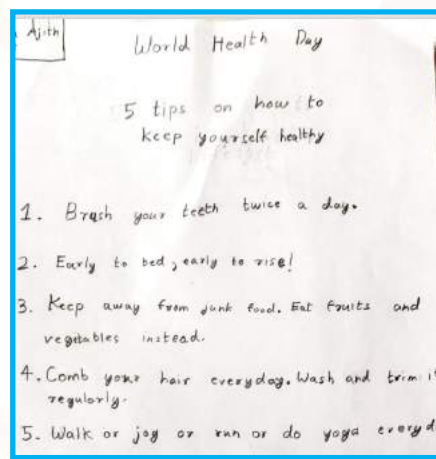 Ajith
World Health Day
5 tips on how to
keep yourself healthy
1. Brush your teeth twice a day.
2. Early to bed, early to rise!
3. Keep away from junk food. Eat fruits and
vegetables instead.
4. Comb your hair everyday. Wash and trim
regularly.
5. Walk or joy or run or do yoga